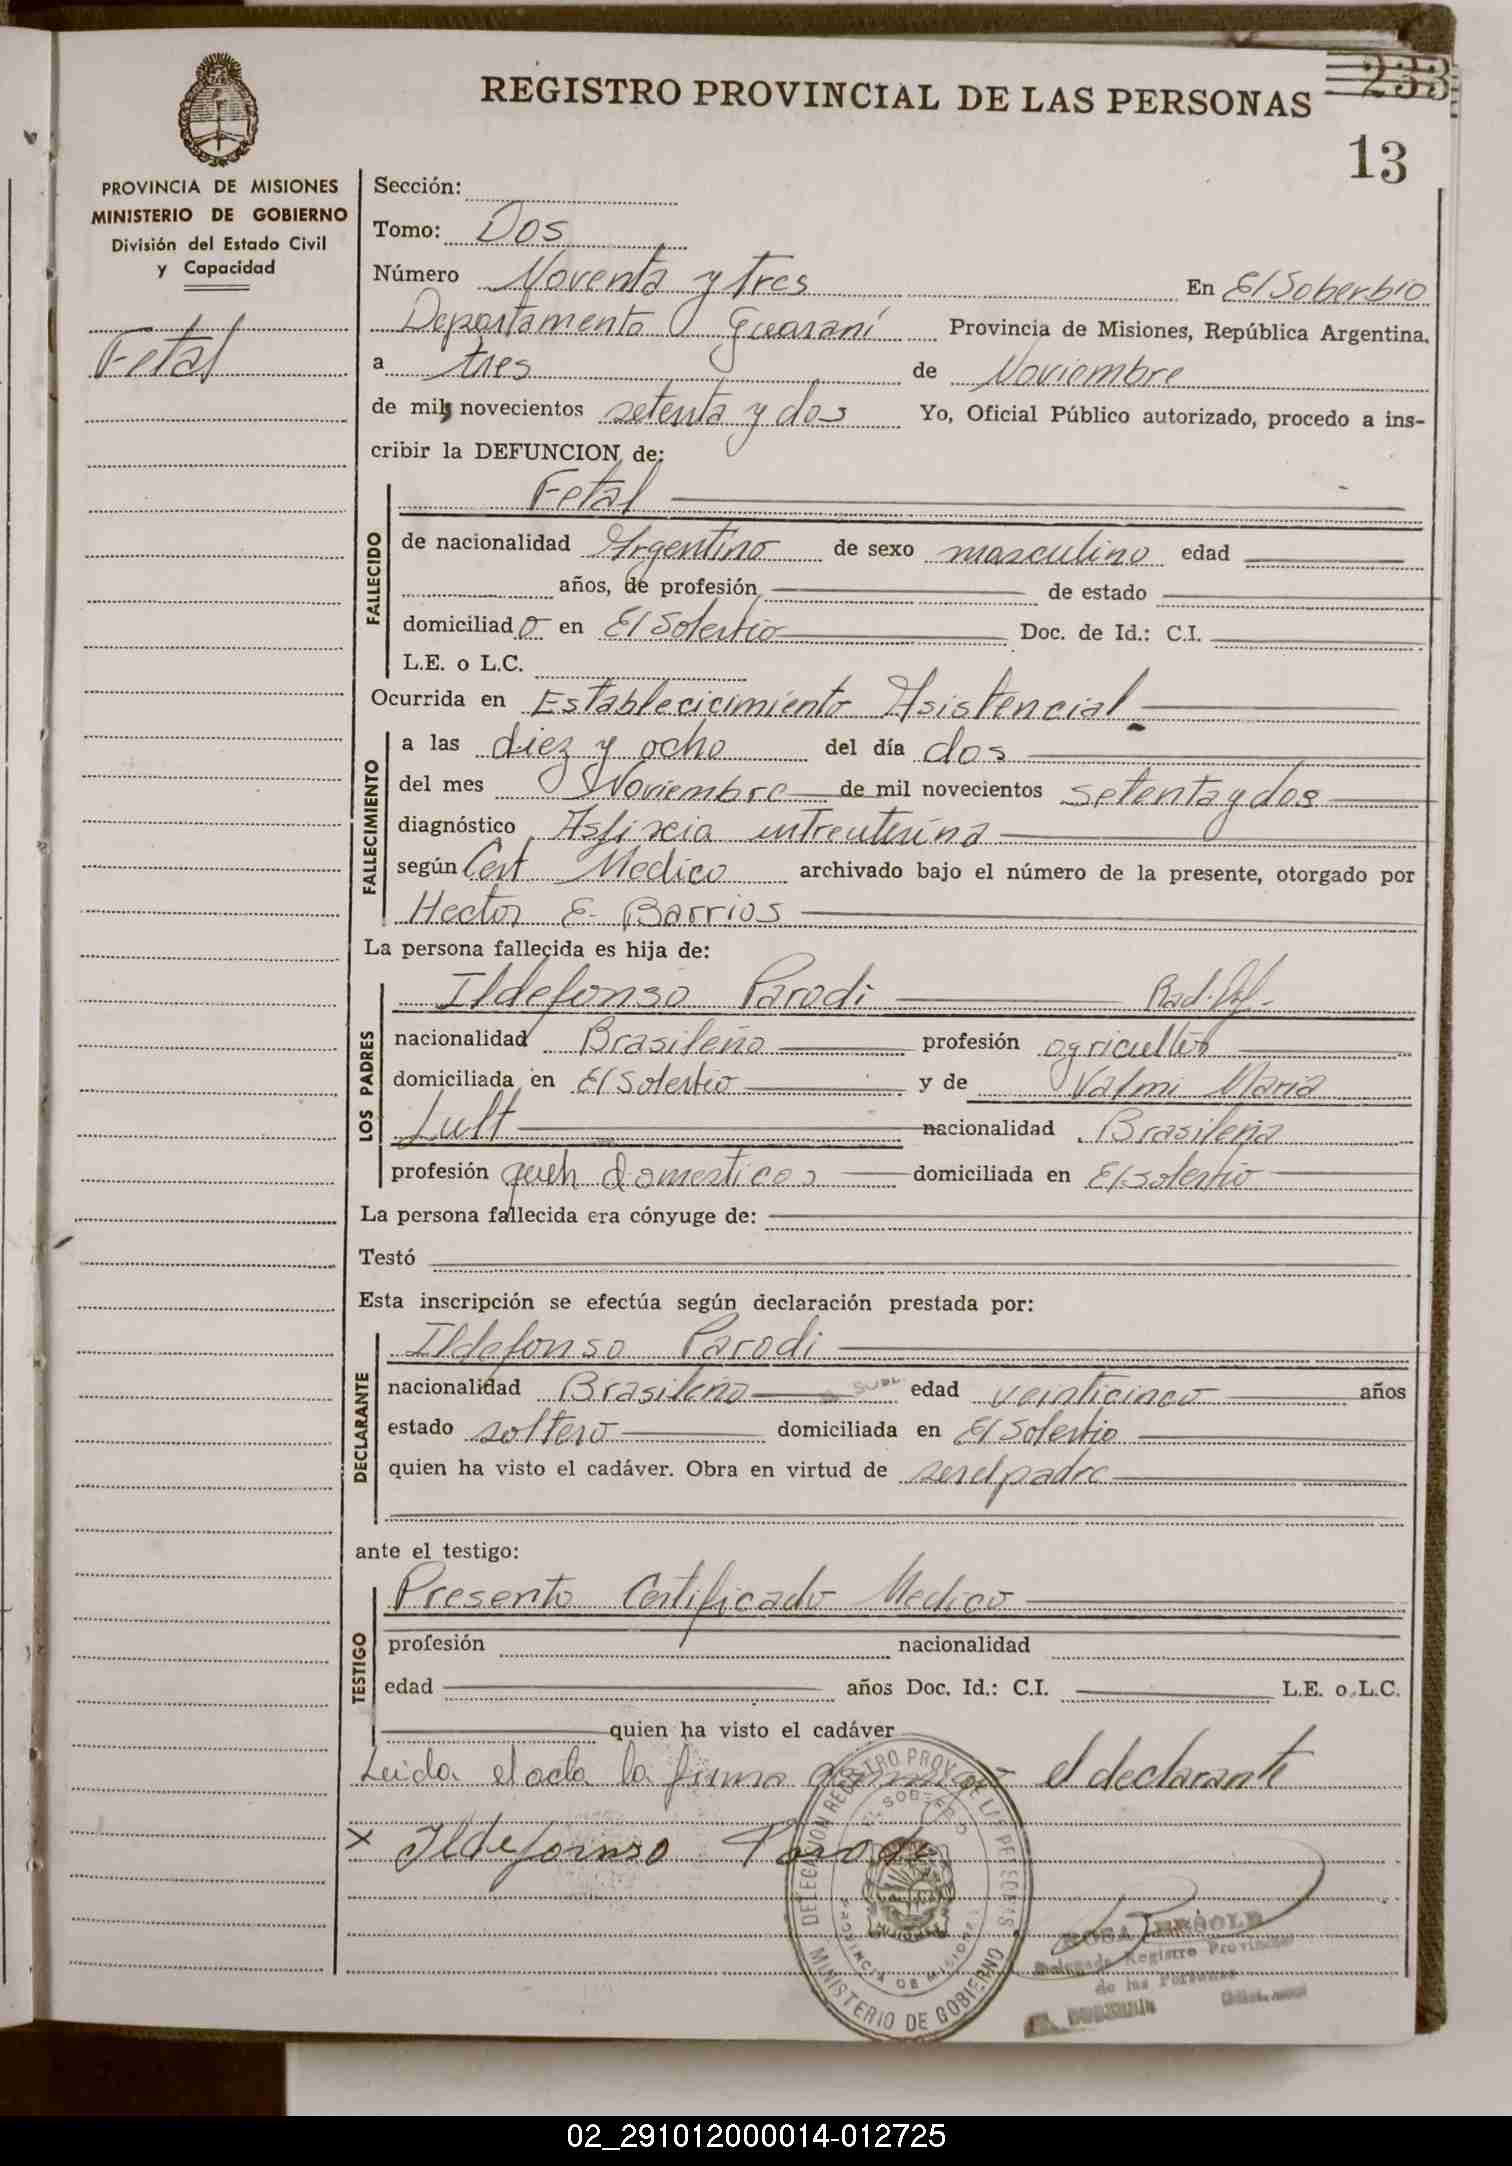 REGISTRO PROVINCIAL DE LAS PERSONAS
233
13
PROVINCIA DE MISIONES
MINISTERIO DE GOBIERNO
División del Estado Civil
y Capacidad
Fetal
Sección:
Tomo: Dos
Número Noventa y tres En El Soberbio
Departamento Guaraní Provincia de Misiones, República Argentina,
a tres de Noviembre
de mil novecientos setenta y dos Yo, Oficial Público autorizado, procedo a ins-
cribir la DEFUNCION de:
FALLECIDO
Fetal
de nacionalidad Argentino de sexo masculino edad
años, de profesión de estado
domiciliado en El Soberbio Doc. de Id.: C.I.
L.E. o L.C.
Ocurrida en Establecicimiento Asistencial
FALLECIMIENTO
a las diez y ocho del día dos
del mes Noviembre de mil novecientos setenta y dos
diagnóstico Asfixia intreuterina
según Cert Medico archivado bajo el número de la presente, otorgado por
Hector E. Barrios
La persona fallecida es hija de:
LOS PADRES
Ildefonso Parodi
nacionalidad Brasileño profesión agricultor
domiciliada en El Soberbio y de Valmi Maria
Lult nacionalidad Brasileña
profesión queh domesticos domiciliada en El Soberbio
La persona fallecida era cónyuge de:
Testó
Esta inscripción se efectúa según declaración prestada por:
DECLARANTE
Ildefonso Parodi
nacionalidad Brasileño edad veinticinco años
estado soltero domiciliada en El Soberbio
quien ha visto el cadáver. Obra en virtud de ser el padre
ante el testigo:
TESTIGO
Presento Certificado Medico
profesión nacionalidad
edad años Doc. Id.: C.I. L.E. o L.C.
quien ha visto el cadáver
Leida el acta la firma el declarante
x Ildefonso Parodi
DELEGACION REGISTRO PROV. DE LAS PERSONAS
EL SOBERBIO
PROVINCIA DE MISIONES
MINISTERIO DE GOBIERNO
ROSA
Delegada Registro Provincial
de las Personas
02_291012000014-012725